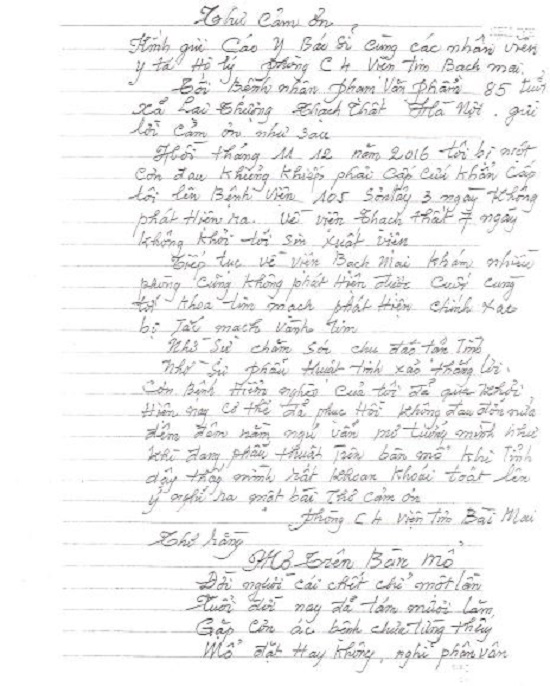 Thư Cảm Ơn
Kính gửi Các Y Bác Sĩ cùng các nhân viên
y tá Hộ lý phòng C4 Viện tim Bạch mai
Tôi Bệnh nhân Phạm Văn Phẩm 85 tuổi
xã Lại Thượng Thạch Thất Hà Nội. gửi
lời cảm ơn như sau
Hồi tháng 11 12 năm 2016 tôi bị một
Cơn đau khủng khiếp phải Cấp Cứu khẩn Cấp
tôi lên Bệnh viện 105 Sơn tây 3 ngày không
phát Hiện ra. về viện Thạch thất 7 ngày
không khỏi tôi sin xuất viện
Tiếp tục về viện Bạch Mai khám nhiều
phòng Cũng không phát Hiện được Cuối cùng
tới khoa tim mạch phát Hiện chính xác
bị Tắc mạch vành tim
Nhờ Sự chăm Sóc chu đáo tận Tình
Nhờ Sự phẫu thuật tinh xảo thắng lợi.
Cơn Bệnh Hiểm nghèo Của tôi đã qua khỏi
Hiện nay cơ thể đã phục Hồi không đau đớn nữa
đêm đêm nằm ngủ vẫn mơ tưởng mình như
khi đang phẫu thuật Trên bàn mổ khi Tỉnh
dậy thấy mình rất khoan khoái toát lên
ý nghĩ ra một bài Thơ Cảm ơn
Phòng C4 Viện Tim Bạch Mai
Thơ rằng
Mổ Trên Bàn Mổ
Đời người cái chết chỉ một lần
Tuổi đời nay đã tám mươi lăm
Gặp Cơn ác bệnh chưa từng thấy
Mổ đặt Hay không, nghĩ phân vân